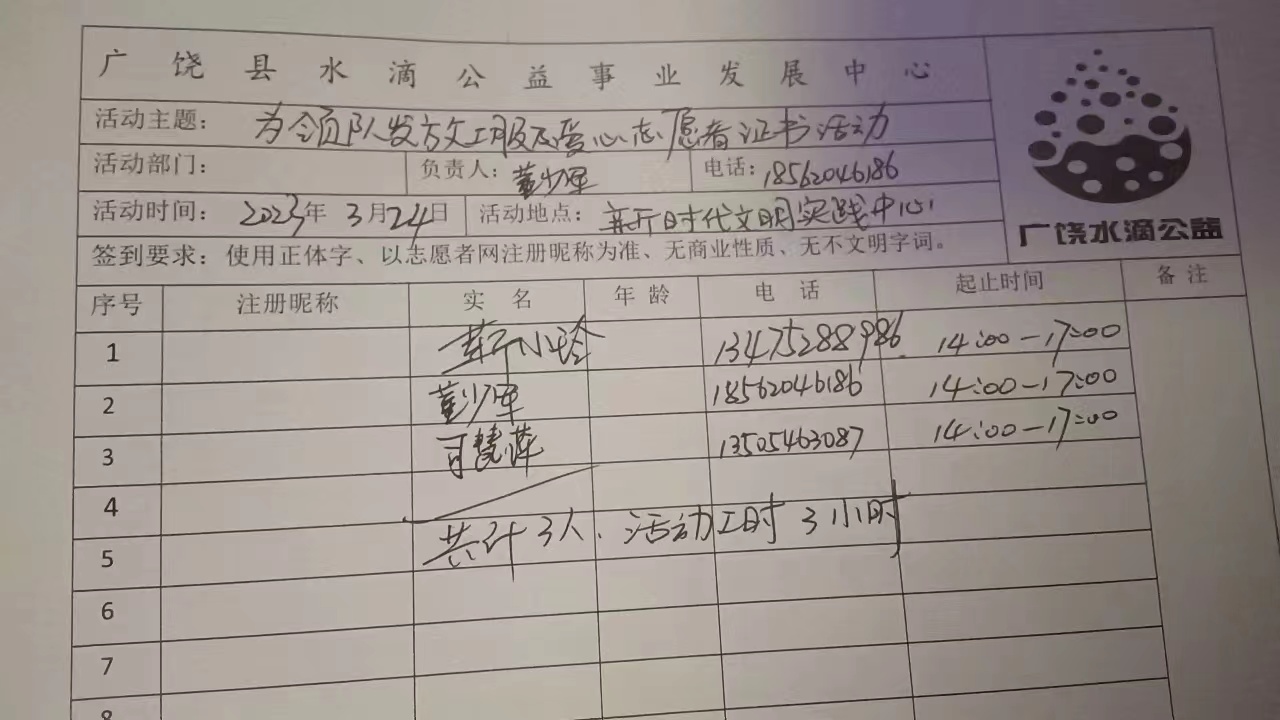 广饶县水滴公益事业发展中心
活动主题: 为领队发放工服及爱心志愿者证书活动
活动部门: 负责人: 董少军 电话: 18562046186
活动时间: 2023年3月24日 活动地点: 新时代文明实践中心
广饶水滴公益
签到要求: 使用正体字、以志愿者网注册昵称为准、无商业性质、无不文明字词。
序号 注册昵称 实名 年龄 电话 起止时间 备注
1 靳小玲 13475288986 14:00-17:00
2 董少军 18562046186 14:00-17:00
3 13505463087 14:00-17:00
4
5 共计3人. 活动工时3小时
6
7
8